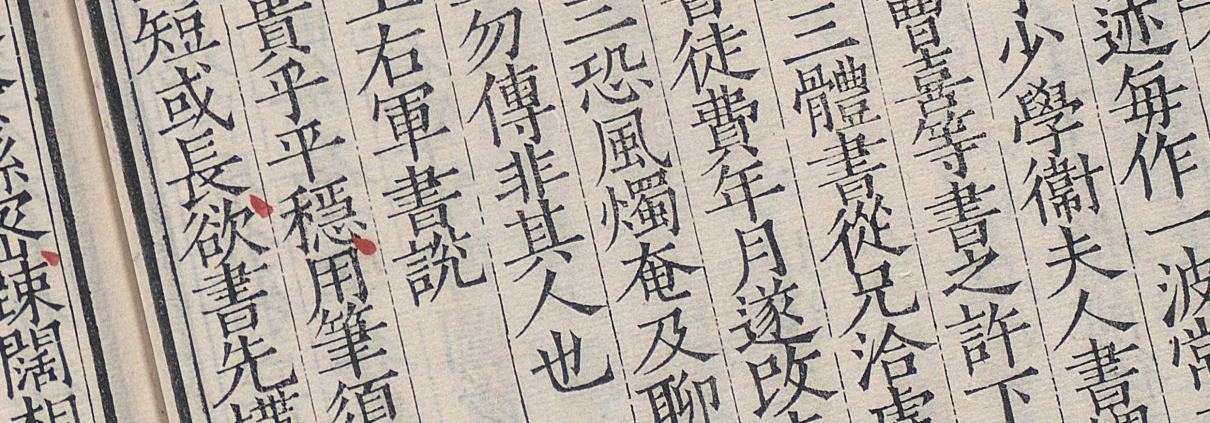 述每作一波常
少學衞夫人書
曹喜等書之許下
三體書從兄洽處
徒費年月遂改
三恐風燭奄及聊
勿傳非其人也
右軍書說
貴乎平穩用筆須
短或長欲書先構
疎闊相